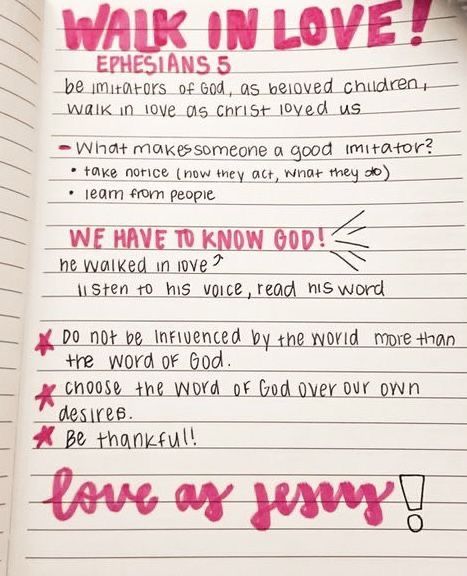 WALK IN LOVE!
EPHESIANS 5
be imitators of God, as beloved children,
walk in love as Christ loved us
- What makes someone a good imitator?
• take notice (how they act, what they do)
• learn from people
WE HAVE TO KNOW GOD!
he walked in love
listen to his voice, read his word
Do not be influenced by the world more than
the word of God.
choose the word of God over our own
desires.
Be thankful!
love as jesus!